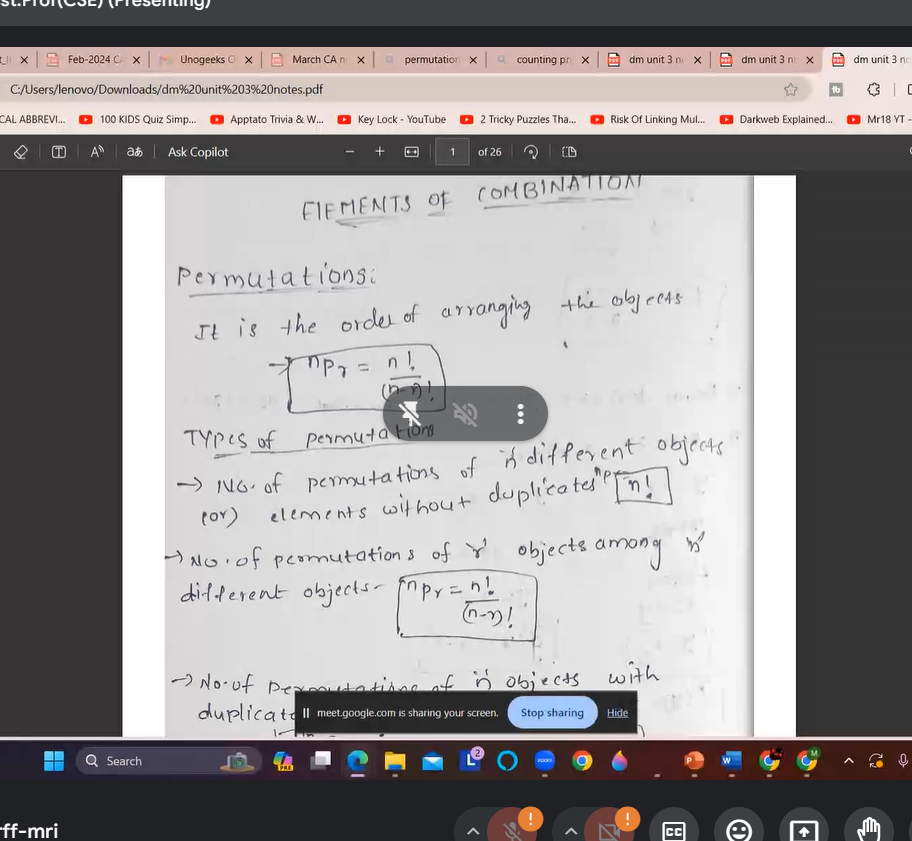 st.Prof(CSE) (Presenting)
Feb-2024 CA
Unogeeks
March CA n
permutation
counting pr
dm unit 3 n
dm unit 3 n
dm unit 3 no
C:/Users/lenovo/Downloads/dm%20unit%203%20notes.pdf
CAL ABBREVI... 100 KIDS Quiz Simp... Apptato Trivia & W... Key Lock - YouTube 2 Tricky Puzzles Tha... Risk Of Linking Mul... Darkweb Explained... Mr18 YT -
Ask Copilot 1 of 26
ElEMENTS OF COMBINATION
Permutations:
It is the order of arranging the objects
→ nPr = n!
(n-r)!
TYPes of permutations
→ No. of permutations of 'n' different objects
(or) elements without duplicates nPr n!
→ No. of permutations of 'r' objects among 'n'
different objects- nPr = n!
(n-r)!
→ No. of permutations of 'n' objects with
duplicat
meet.google.com is sharing your screen. Stop sharing Hide
Search PRE L 2 zoom P W M
rff-mri
! ! CC